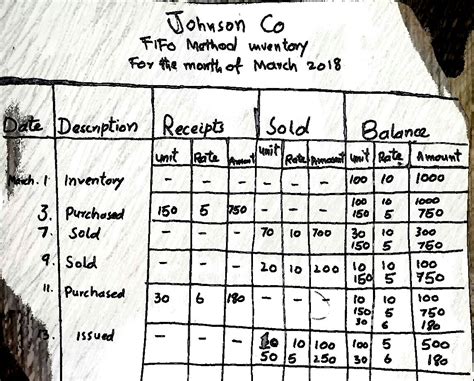 Johnson Co
FIFO Method inventory
For the month of March 2018
Date Description Receipts Sold Balance
unit Rate Amount unit Rate Amount unit Rate Amount
March. 1 Inventory - - - - - - 100 10 1000
3. Purchased 150 5 750 - - - 100 10 1000
150 5 750
7. Sold - - - 70 10 700 30 10 300
150 5 750
9. Sold - - - 20 10 200 10 10 100
150 5 750
11. Purchased 30 6 180 - - 10 10 100
150 5 750
30 6 180
Issued - - - 10 10 100 100 5 500
50 5 250 30 6 180